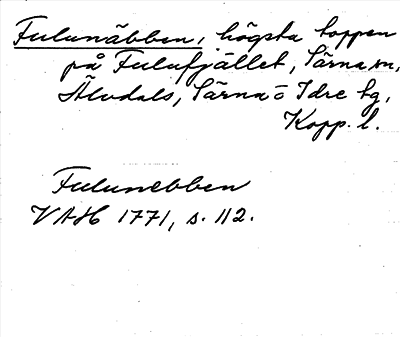 Fulunäbben, högsta toppen
på Fulufjället, Särna sn,
Älvdals, Särna o Idre tg,
Kopp. l.
Fulunebben
VAH 1771, s. 112.